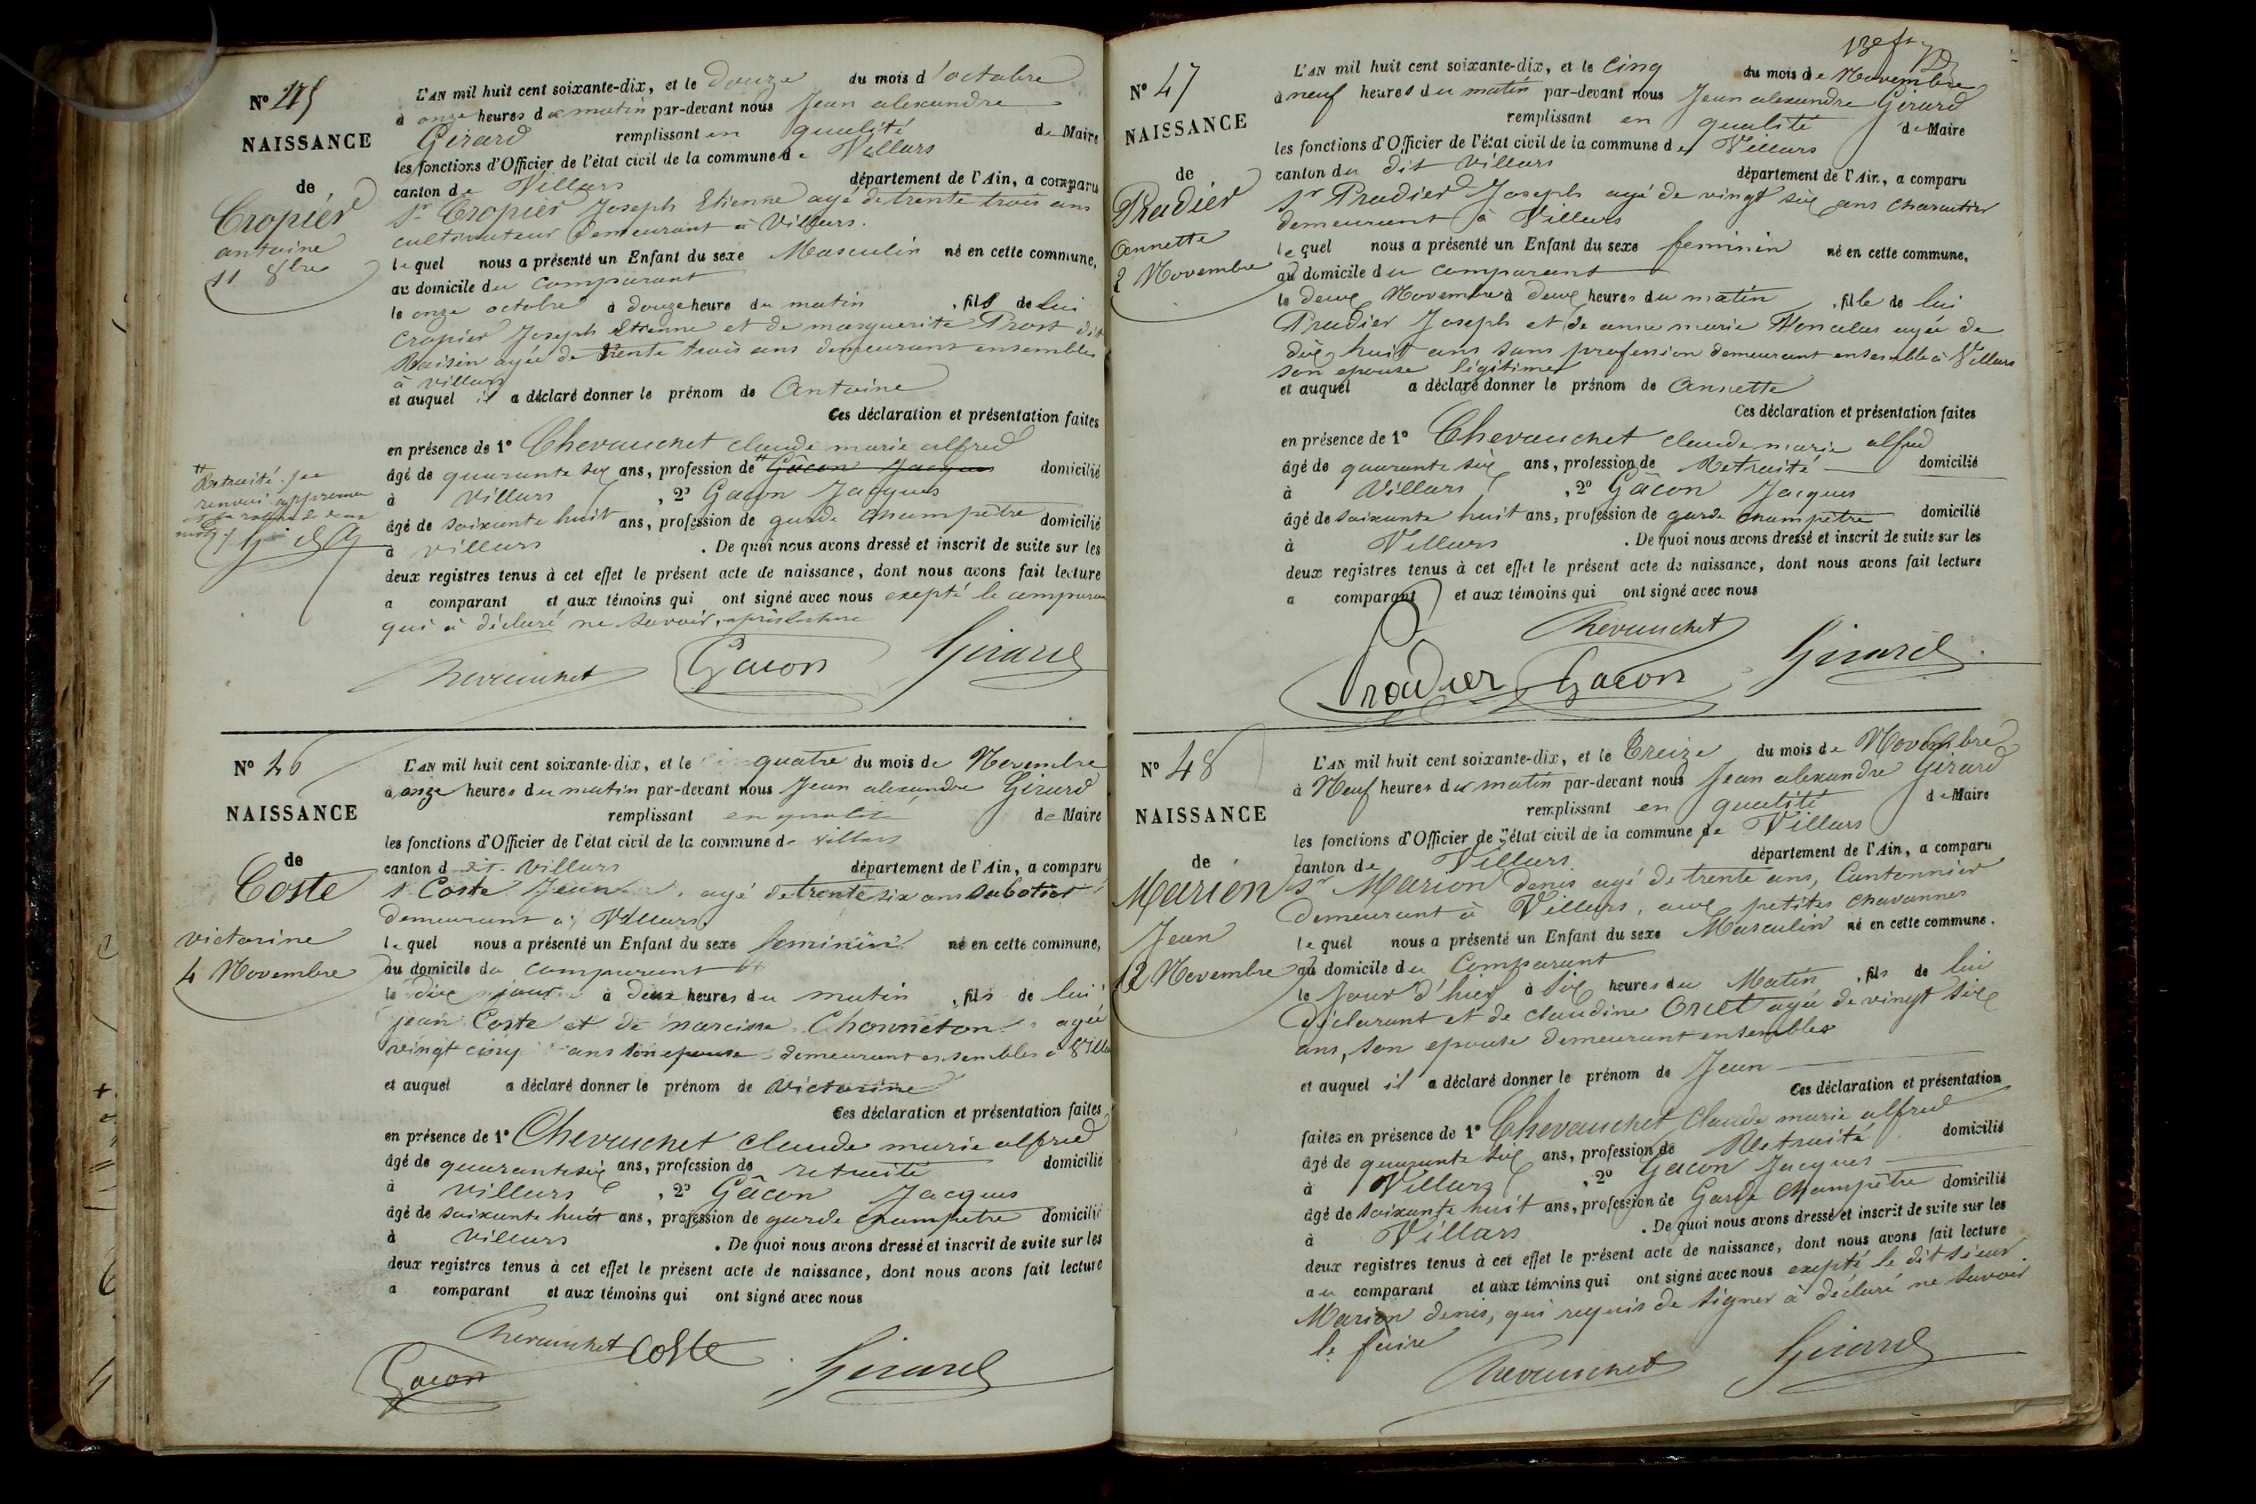 Nº 45
NAISSANCE
de
Cropier
antoine
11 8bre
L'AN mil huit cent soixante-dix, et le Douze du mois d'octobre
à onze heures du matin par-devant nous Jean alexandre
Girard remplissant en qualité de Maire
les fonctions d'Officier de l'état civil de la commune de Villars
canton de Villars département de l'Ain, a comparu
Sr Cropier Joseph Etienne agé de trente trois ans
cultivateur demeurant à Villars.
lequel nous a présenté un Enfant du sexe Masculin né en cette commune,
au domicile du comparant
le onze octobre à douze heure du matin, fils de lui
Cropier Joseph Etienne et de marguerite Prost dit
Raisin agée de trente trois ans demeurant ensembles
à villars
et auquel il a déclaré donner le prénom de Antoine
Ces déclaration et présentation faites
en présence de 1º Chevauchet claude marie alfred
âgé de quarante six ans, profession de Gâcon Jacques domicilié
à Villars, 2º Gacon Jacques
âgé de soixante huit ans, profession de garde champêtre domicilié
à villars. De quoi nous avons dressé et inscrit de suite sur les
deux registres tenus à cet effet le présent acte de naissance, dont nous avons fait lecture
a comparant et aux témoins qui ont signé avec nous exepté le comparan
qui a déclaré ne savoir, après lecture
Retraité
renvoi approuvé
Chevauchet Gacon Girard
Nº 46
NAISSANCE
de
Coste
victorine
4 Novembre
L'AN mil huit cent soixante-dix, et le quatre du mois de Novembre
à onze heures du matin par-devant nous Jean alexandre Girard
remplissant en qualité de Maire
les fonctions d'Officier de l'état civil de la commune de villars
canton dit villars département de l'Ain, a comparu
Sr Coste Jean agé de trente six ans sabotier
demeurant à Villars
lequel nous a présenté un Enfant du sexe feminin né en cette commune,
au domicile du comparant
le dit jour à deux heures du matin, fils de lui
jean Coste et de narcisse Chonneton agée
vingt cinq ans son epouse demeurant ensembles à Villa
et auquel a déclaré donner le prénom de Victorine
Ces déclaration et présentation faites
en présence de 1º Chevauchet claude marie alfred
âgé de quarante six ans, profession de retraité domicilié
à villars, 2º Gâcon Jacques
âgé de soixante huit ans, profession de garde champetre domicilié
à Villars. De quoi nous avons dressé et inscrit de suite sur les
deux registres tenus à cet effet le présent acte de naissance, dont nous avons fait lecture
a comparant et aux témoins qui ont signé avec nous
Chevauchet Coste
Gacon Girard
Nº 47
NAISSANCE
de
Pradier
Annette
2 Novembre
L'AN mil huit cent soixante-dix, et le Cinq du mois de Novembre
à neuf heures du matin par-devant nous Jean alexandre Girard
remplissant en qualité de Maire
les fonctions d'Officier de l'état civil de la commune de Villars
canton du dit Villars département de l'Ain, a comparu
Sr Pradier Joseph agé de vingt six ans charcutier
demeurant à Villars
lequel nous a présenté un Enfant du sexe feminin né en cette commune,
au domicile du comparant
le deux Novembre à deux heures du matin, fille de lui
Pradier Joseph et de anne marie agée de
dix huit ans sans profession demeurant ensemble à Villars
son epouse légitime
et auquel a déclaré donner le prénom de Annette
Ces déclaration et présentation faites
en présence de 1º Chevauchet claude marie alfred
âgé de quarante six ans, profession de Retraité domicilié
à Villars, 2º Gâcon Jacques
âgé de soixante huit ans, profession de garde champêtre domicilié
à Villars. De quoi nous avons dressé et inscrit de suite sur les
deux registres tenus à cet effet le présent acte de naissance, dont nous avons fait lecture
a comparant et aux témoins qui ont signé avec nous
Chevauchet
Pradier Gacon Girard
Nº 48
NAISSANCE
de
Marion
Jean
12 Novembre
L'AN mil huit cent soixante-dix, et le Treize du mois de Novembre
à Neuf heures du matin par-devant nous Jean alexandre Girard
remplissant en qualité de Maire
les fonctions d'Officier de l'état civil de la commune de Villars
canton de Villars département de l'Ain, a comparu
Sr Marion Denis agé de trente ans, Cantonnier
Demeurant à Villars, aux petites chavannes
lequel nous a présenté un Enfant du sexe Masculin né en cette commune.
au domicile du Comparant
le Jour d'hier à six heures du Matin, fils de lui
Déclarant et de claudine agée de vingt six
ans, son epouse demeurant ensembles
et auquel il a déclaré donner le prénom de Jean
Ces déclaration et présentation
faites en présence de 1º Chevauchet Claude marie alfred
âgé de quarante six ans, profession de Retraité domicilié
à Villars, 2º Gacon Jacques
âgé de soixante huit ans, profession de Garde Champêtre domicilié
à Villars. De quoi nous avons dressé et inscrit de suite sur les
deux registres tenus à cet effet le présent acte de naissance, dont nous avons fait lecture
au comparant et aux témoins qui ont signé avec nous exepté le dit sieur
Marion denis, qui requis de signer à déclaré ne savoir
le faire
Chevauchet Girard